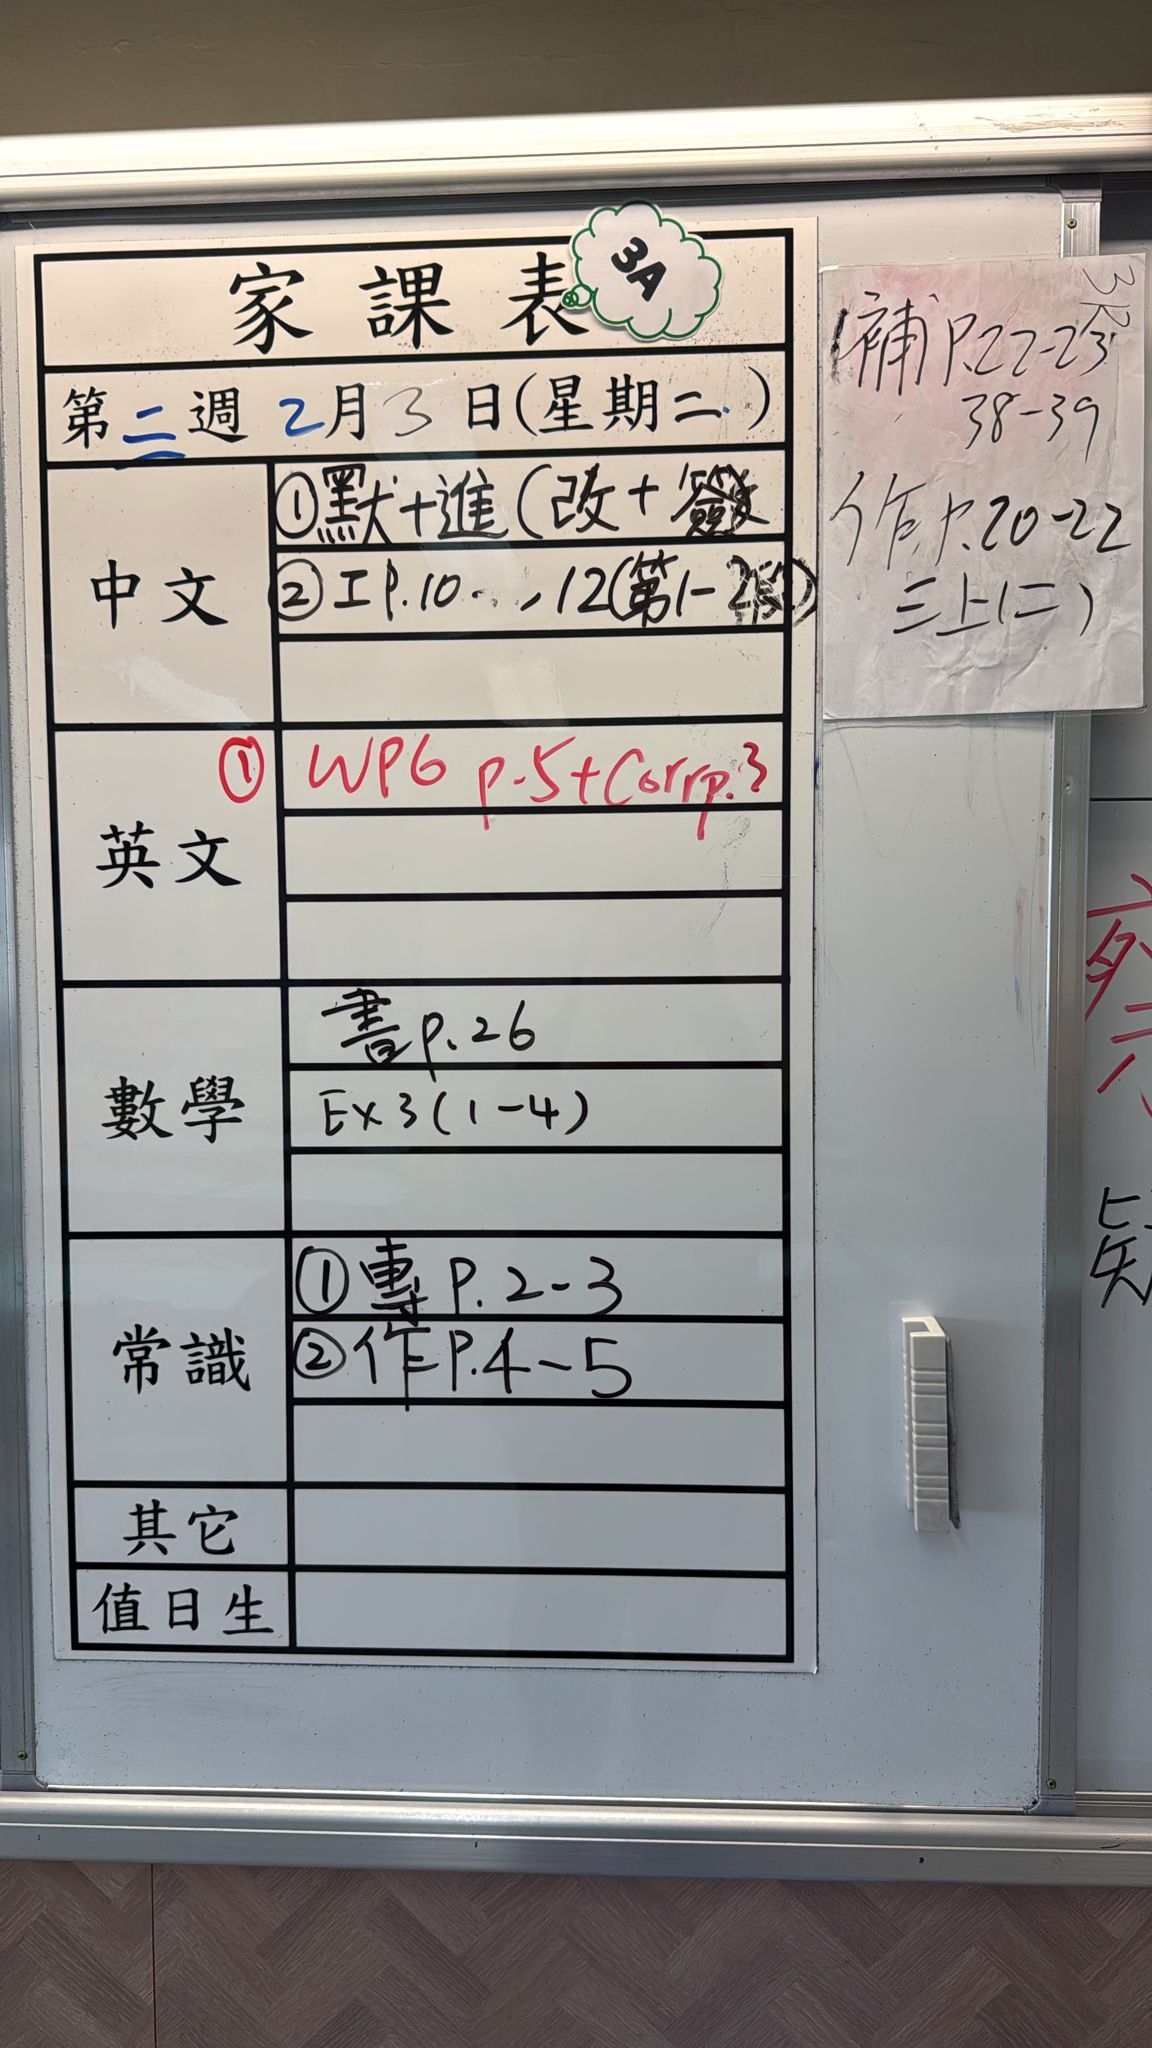 家課表
3A
第二週 2月3日(星期二)
中文
①默+進(改+簽
②工P.10...,12(第1-2段)
英文
① WPG p.5+Corrp.3
數學
書p.26
Ex3(1-4)
常識
①專P.2-3
②作P.4-5
其它
值日生
補P.22-23
38-39
作P.20-22
三上(二)